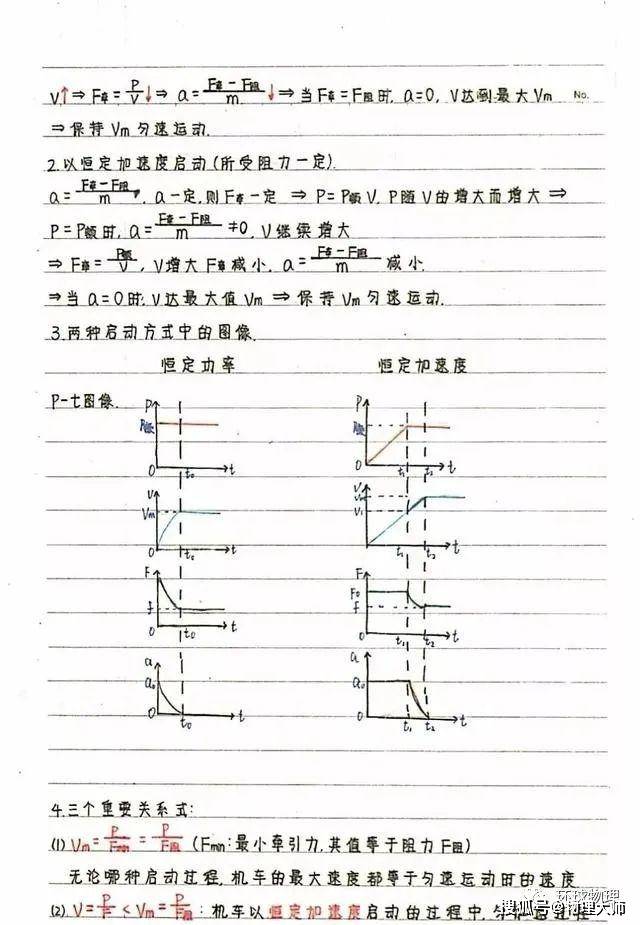 V↑ ⇒ F牵 = P/V ↓ ⇒ a = (F牵 - F阻)/m ↓ ⇒ 当F牵 = F阻时, a=0, V达到最大Vm No.
⇒ 保持Vm匀速运动.
2.以恒定加速度启动(所受阻力一定).
a = (F牵 - F阻)/m, a一定,则F牵一定 ⇒ P = P额 V, P随V的增大而增大 ⇒
P = P额时, a = (F牵 - F阻)/m ≠0, V继续增大
⇒ F牵 = P额/V, V增大F牵减小, a = (F牵 - F阻)/m 减小.
⇒ 当a=0时, V达最大值Vm ⇒ 保持Vm匀速运动.
3.两种启动方式中的图像.
恒定功率 恒定加速度
P-t图像.
P P额 0 t0 t
P P额 0 t1 t2 t
V Vm 0 t0 t
V Vm V1 0 t1 t2 t
F f 0 t0 t
F F0 f 0 t1 t2 t
a a0 0 t0 t
a a0 0 t1 t2 t
4.三个重要关系式:
(1) Vm = P/Fmin = P/F阻 (Fmin:最小牵引力,其值等于阻力F阻)
无论哪种启动过程, 机车的最大速度都等于匀速运动时的速度
(2). V = P/F < Vm = P/F阻 : 机车以恒定加速度启动的过程中,
环球物理
搜狐号@物理大师